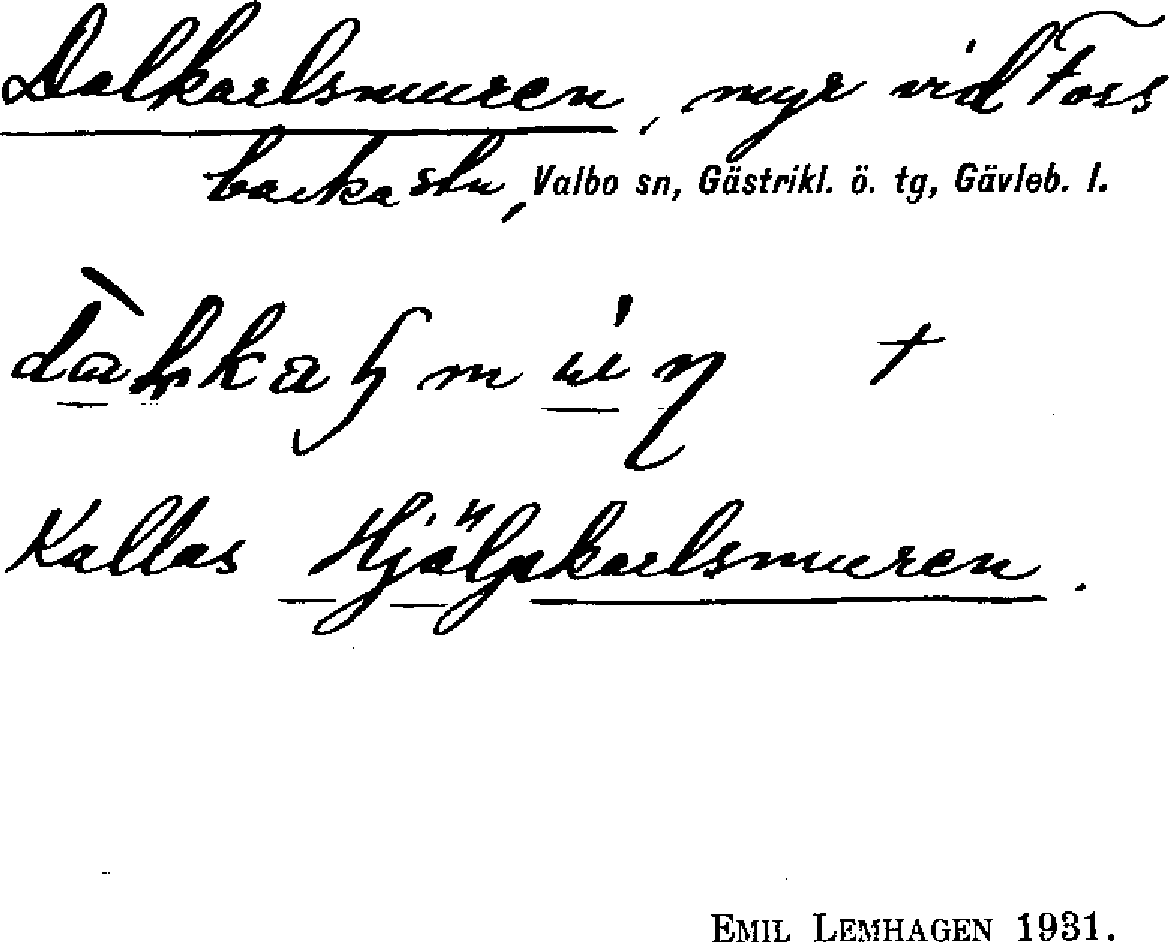 Dalkarlsmuren, myr vid Foss
backa stn, Valbo sn, Gästrikl. ö. tg, Gävleb. l.
Kallas Hjälpkarlsmuren.
EMIL LEMHAGEN 1931.